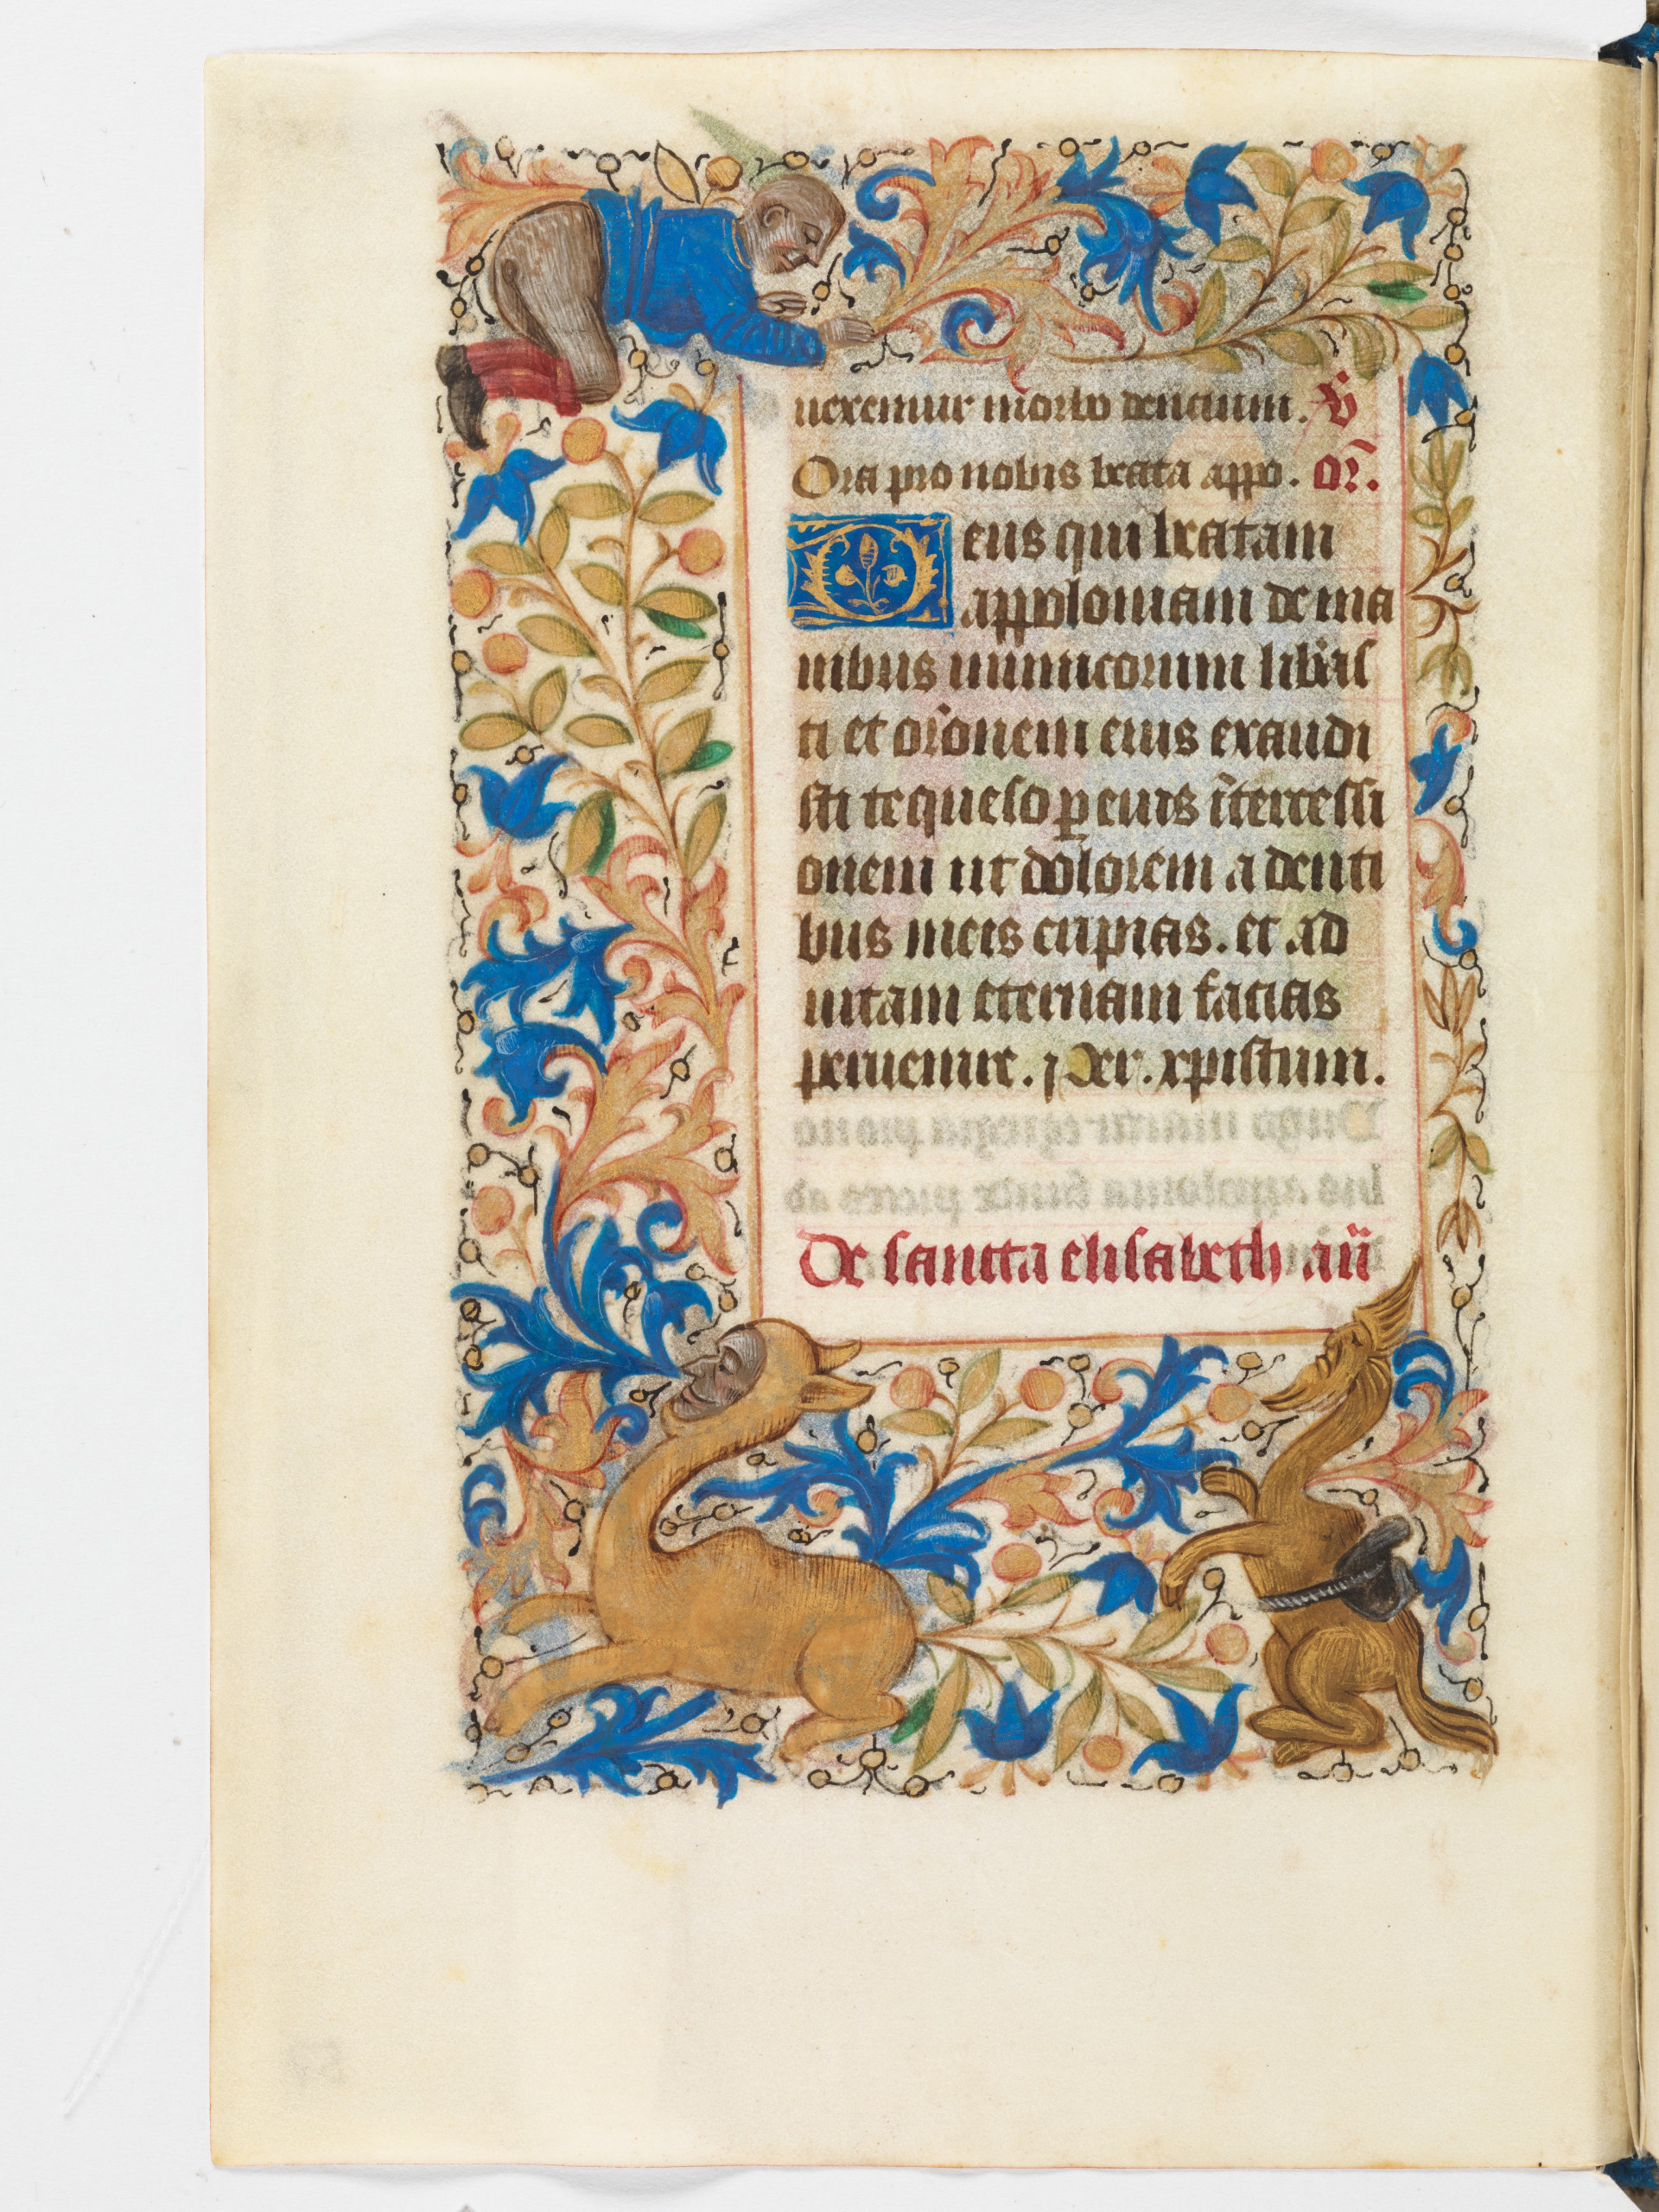 uexemur morbo dentium. V
Ora pro nobis beata appo. or̃.
Deus qui beatam
appoloniam de ma
nibus inimicorum lib̃as
ti et or̃onem eius exaudi
sti te queso ꝑ eius ĩtercessi
onem ut dolorem a denti
bus meis eripias. et ad
uitam eternam facias
peruenire. Per. xpistum.
De sancta elisabeth añ